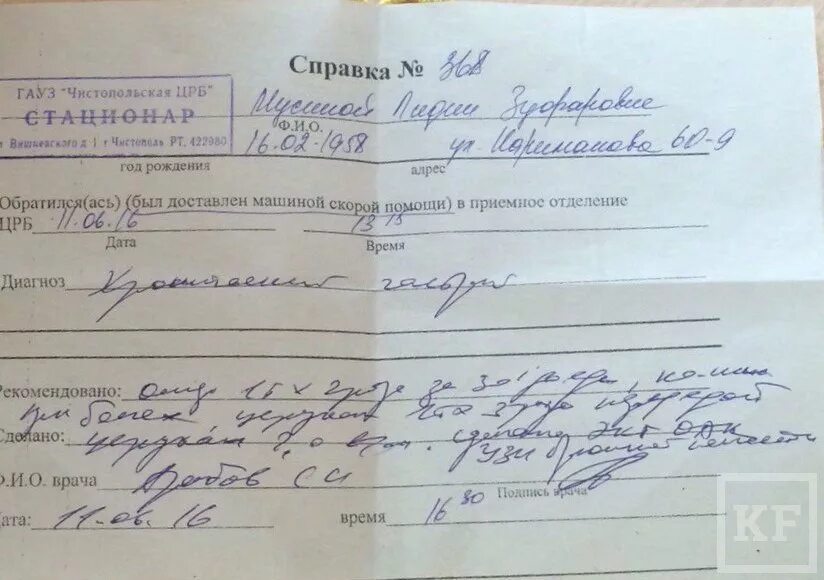 Справка № 368
ГАУЗ "Чистопольская ЦРБ"
СТАЦИОНАР
Вишневского д 1 г Чистополь РТ, 422980
Мусиной Лидии Зуфаровне
Ф.И.О.
16.02.1958 ул. Нариманова 60-9
год рождения адрес
Обратился(ась) (был доставлен машиной скорой помощи) в приемное отделение
ЦРБ 11.06.16 13 15
Дата Время
Диагноз Хронический гастрит
Рекомендовано: 1т х за
При болях церукал
Сделано: церукал сделано ЭКГ ОАК
УЗИ брюшной полости
Ф.И.О. врача
Подпись врача
Дата: 11.06.16 время 16 30
KF